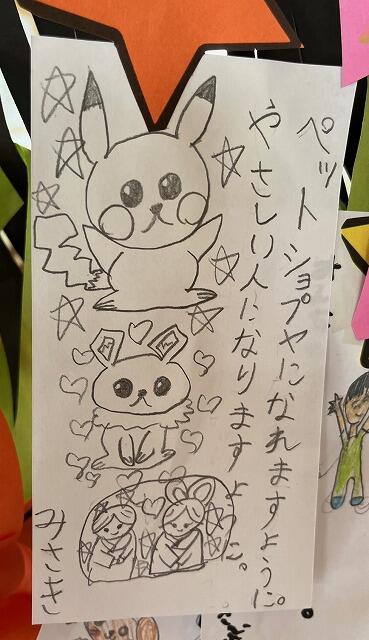 ペットショプヤになれますように。
やさしい人になりますように。
みさき